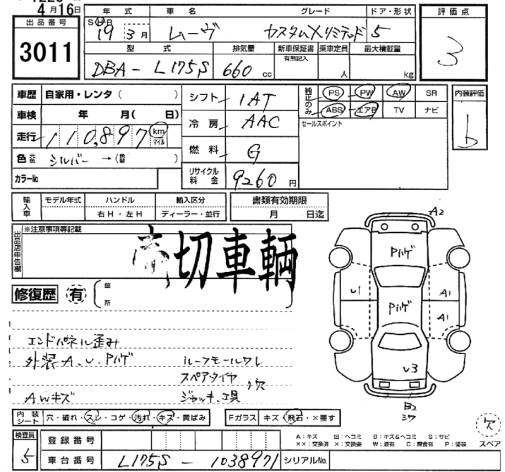 4月16日
出品番号 年式 車名 グレード ドア・形状 評価点
3011 19年3月 ムーヴ カスタムXリミテッド 5 3
型式 排気量 新車保証書 乗車定員 最大積載量
有無記入
DBA-L175S 660 cc 人 kg
車歴 自家用・レンタ( ) シフト 1AT 純正のみ PS PW AW SR 内装評価
車検 年 月(日) 冷房 AAC ABS エアB TV ナビ b
走行 110,897 km マイル セールスポイント
色 シルバー→( ) 燃料 G
カラーNo. リサイクル料金 9260円
輸入車 モデル年式 ハンドル 輸入区分 書類有効期限
右H・左H ディーラー・並行 月 日迄
※注意事項等記載
切車輌
修復歴 有 箇所
A2
Pハゲ
U1 A1
Pハゲ A1
U3
B2
エンドパネル歪み
外装A.U.Pハゲ ルーフモールワレ
スペアタイヤ 欠
AWキズ ジャッキ、工具
内装シート 穴・破れ・スレ・コゲ・汚れ・キズ・黄ばみ Fガラス キズ・飛石・×要す 欠
検査員 登録番号 A:キズ U:ヘコミ B:キズ&ヘコミ S:サビ
××:交換済 X:交換要 W:波有 C:腐食有 P:塗装 スペア
5 車台番号 L175S-1038971 シリアルNo.